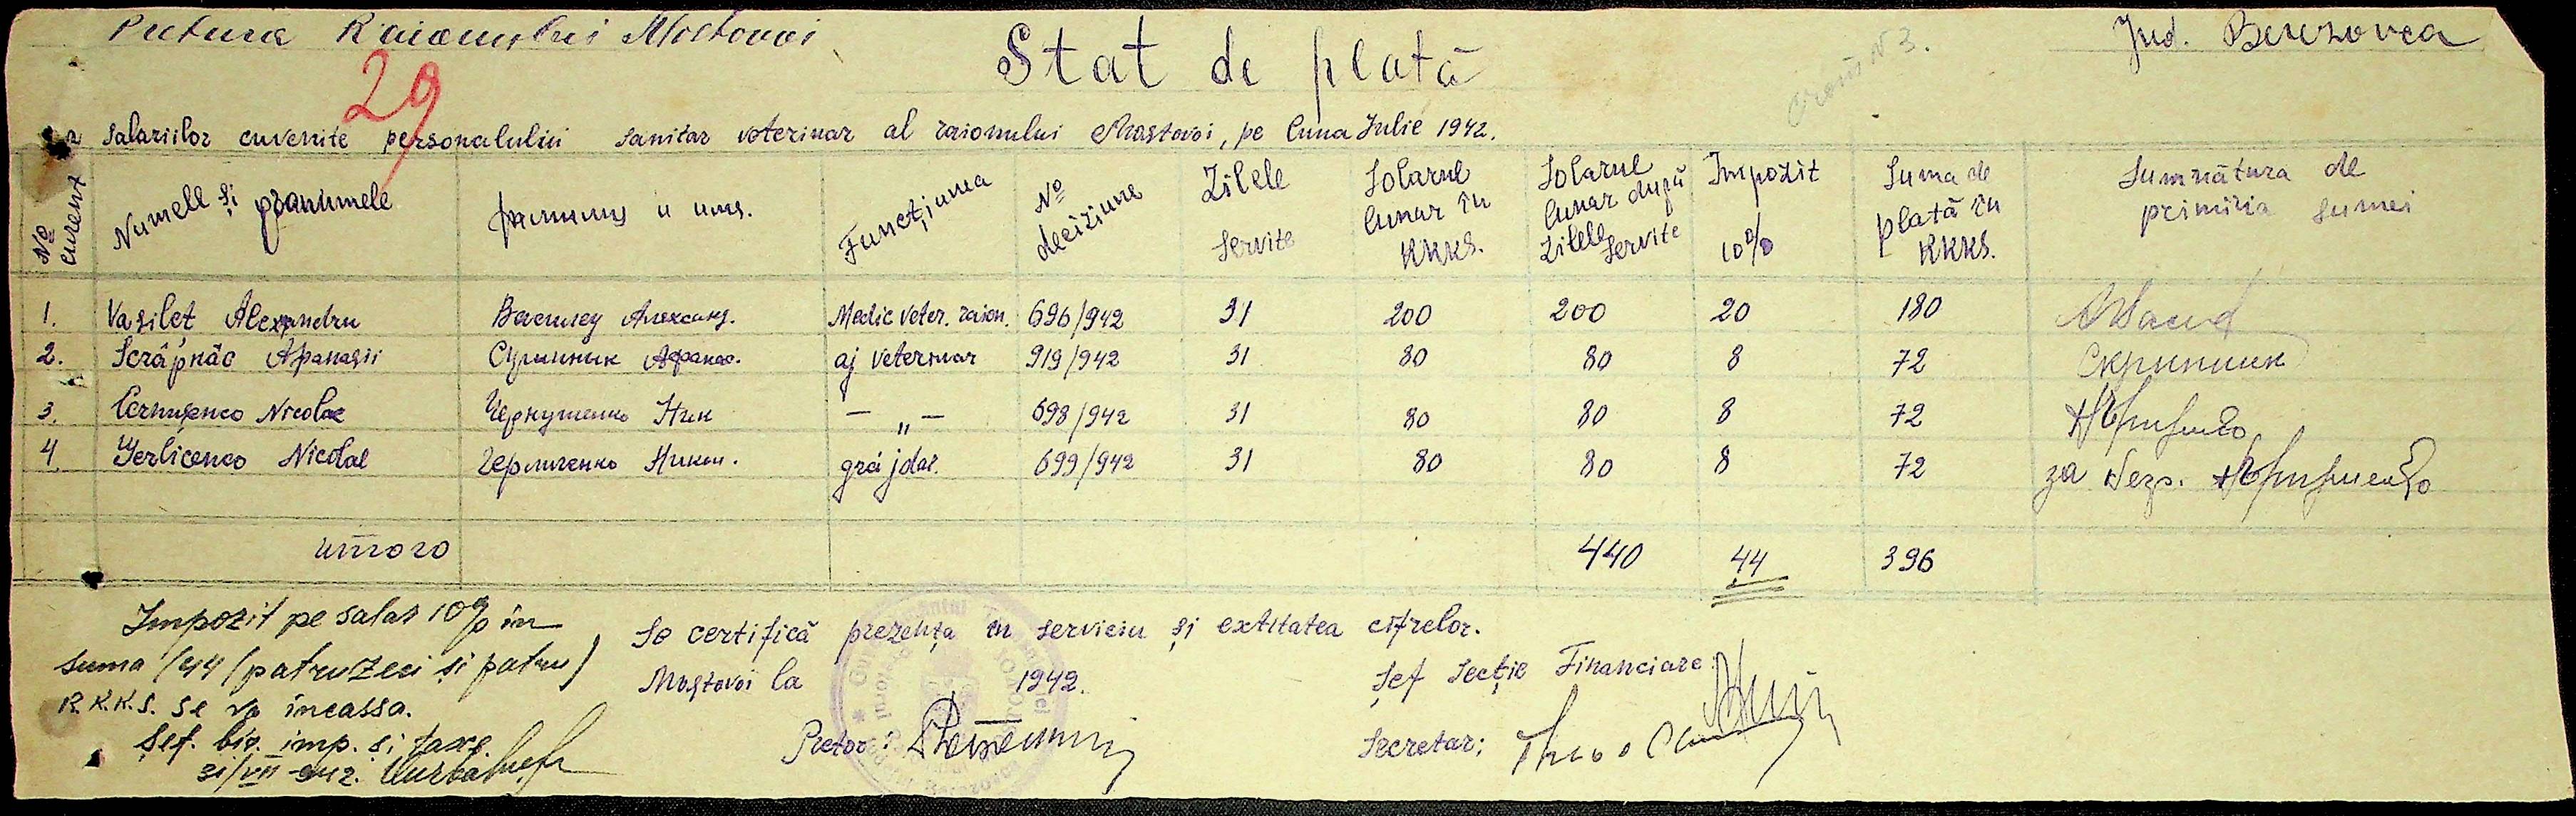 Pretura Raionului Mostovoi
Jud. Berezovca
Stat de plată
29
a salariilor cuvenite personalului sanitar veterinar al raionului Mostovoi, pe luna Julie 1942.
№ curent | Numele și pronumele | фамилия и имя. | Funcțiunea | № deciziune | Zilele servite | Solarul lunar în RKKS. | Solarul lunar după zilele servite | Impozit 10% | Suma de plată în RKKS. | Sumnătura de primiria sumei
1. | Vasileț Alexandru | Василец Александ. | Medic veter. raion. | 696/942 | 31 | 200 | 200 | 20 | 180
2. | Scrâpnâc Afanasii | Скрипник Афанас. | aj veterinar | 919/942 | 31 | 80 | 80 | 8 | 72 | Скрипник
3. | Cernușenco Nicolae | Чернушенко Ник | — „ — | 698/942 | 31 | 80 | 80 | 8 | 72
4 | Gerlicenco Nicolae | Герличенко Никол. | grăjdar. | 699/942 | 31 | 80 | 80 | 8 | 72 | за
итого | 440 | 44 | 396
Impozit pe salar 10% în
suma /44/patruzeci și patru/
R.K.K.S. se va încassa.
Șef. bir. imp. si taxe
31/VII-942.
Se certifică prezența în serviciu și extitatea cifrelor.
Mostovoi la 1942.
Pretor:
Șef Secție Financiare:
Secretar: